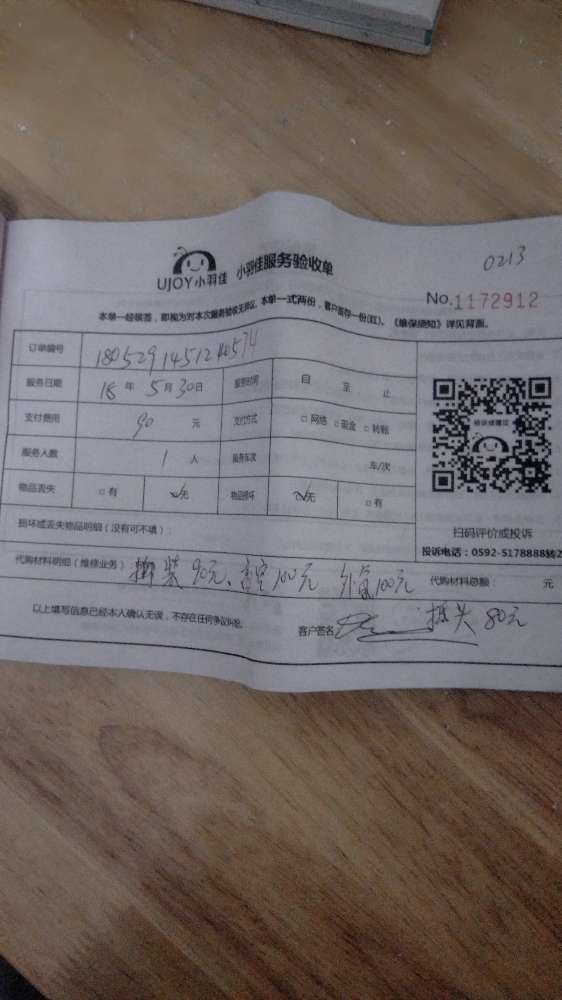 0213
UJOY小羽佳 小羽佳服务验收单
No.1172912
本单一经核签，即视为对本次服务验收无异议。本单一式两份，客户留存一份(红)。《维保须知》详见背面。
订单编号
服务日期 18 年 5 月 30 日 服务时间 自 至 止
支付费用 90 元 支付方式 □ 网络 □ 现金 □ 转账
服务人数 1 人 服务车次 车/次
物品丢失 □ 有 □ 无 物品损坏 □ 无 □ 有
损坏或丢失物品明细（没有可不填）：
扫码评价或投诉
投诉电话：0592-5178888转2
代购材料明细（维修业务）： 拆装 90元、高空 100元 外氟100元 代购材料总额： 元
以上填写信息已经本人确认无误，不存在任何争议纠纷。 客户签名 80元